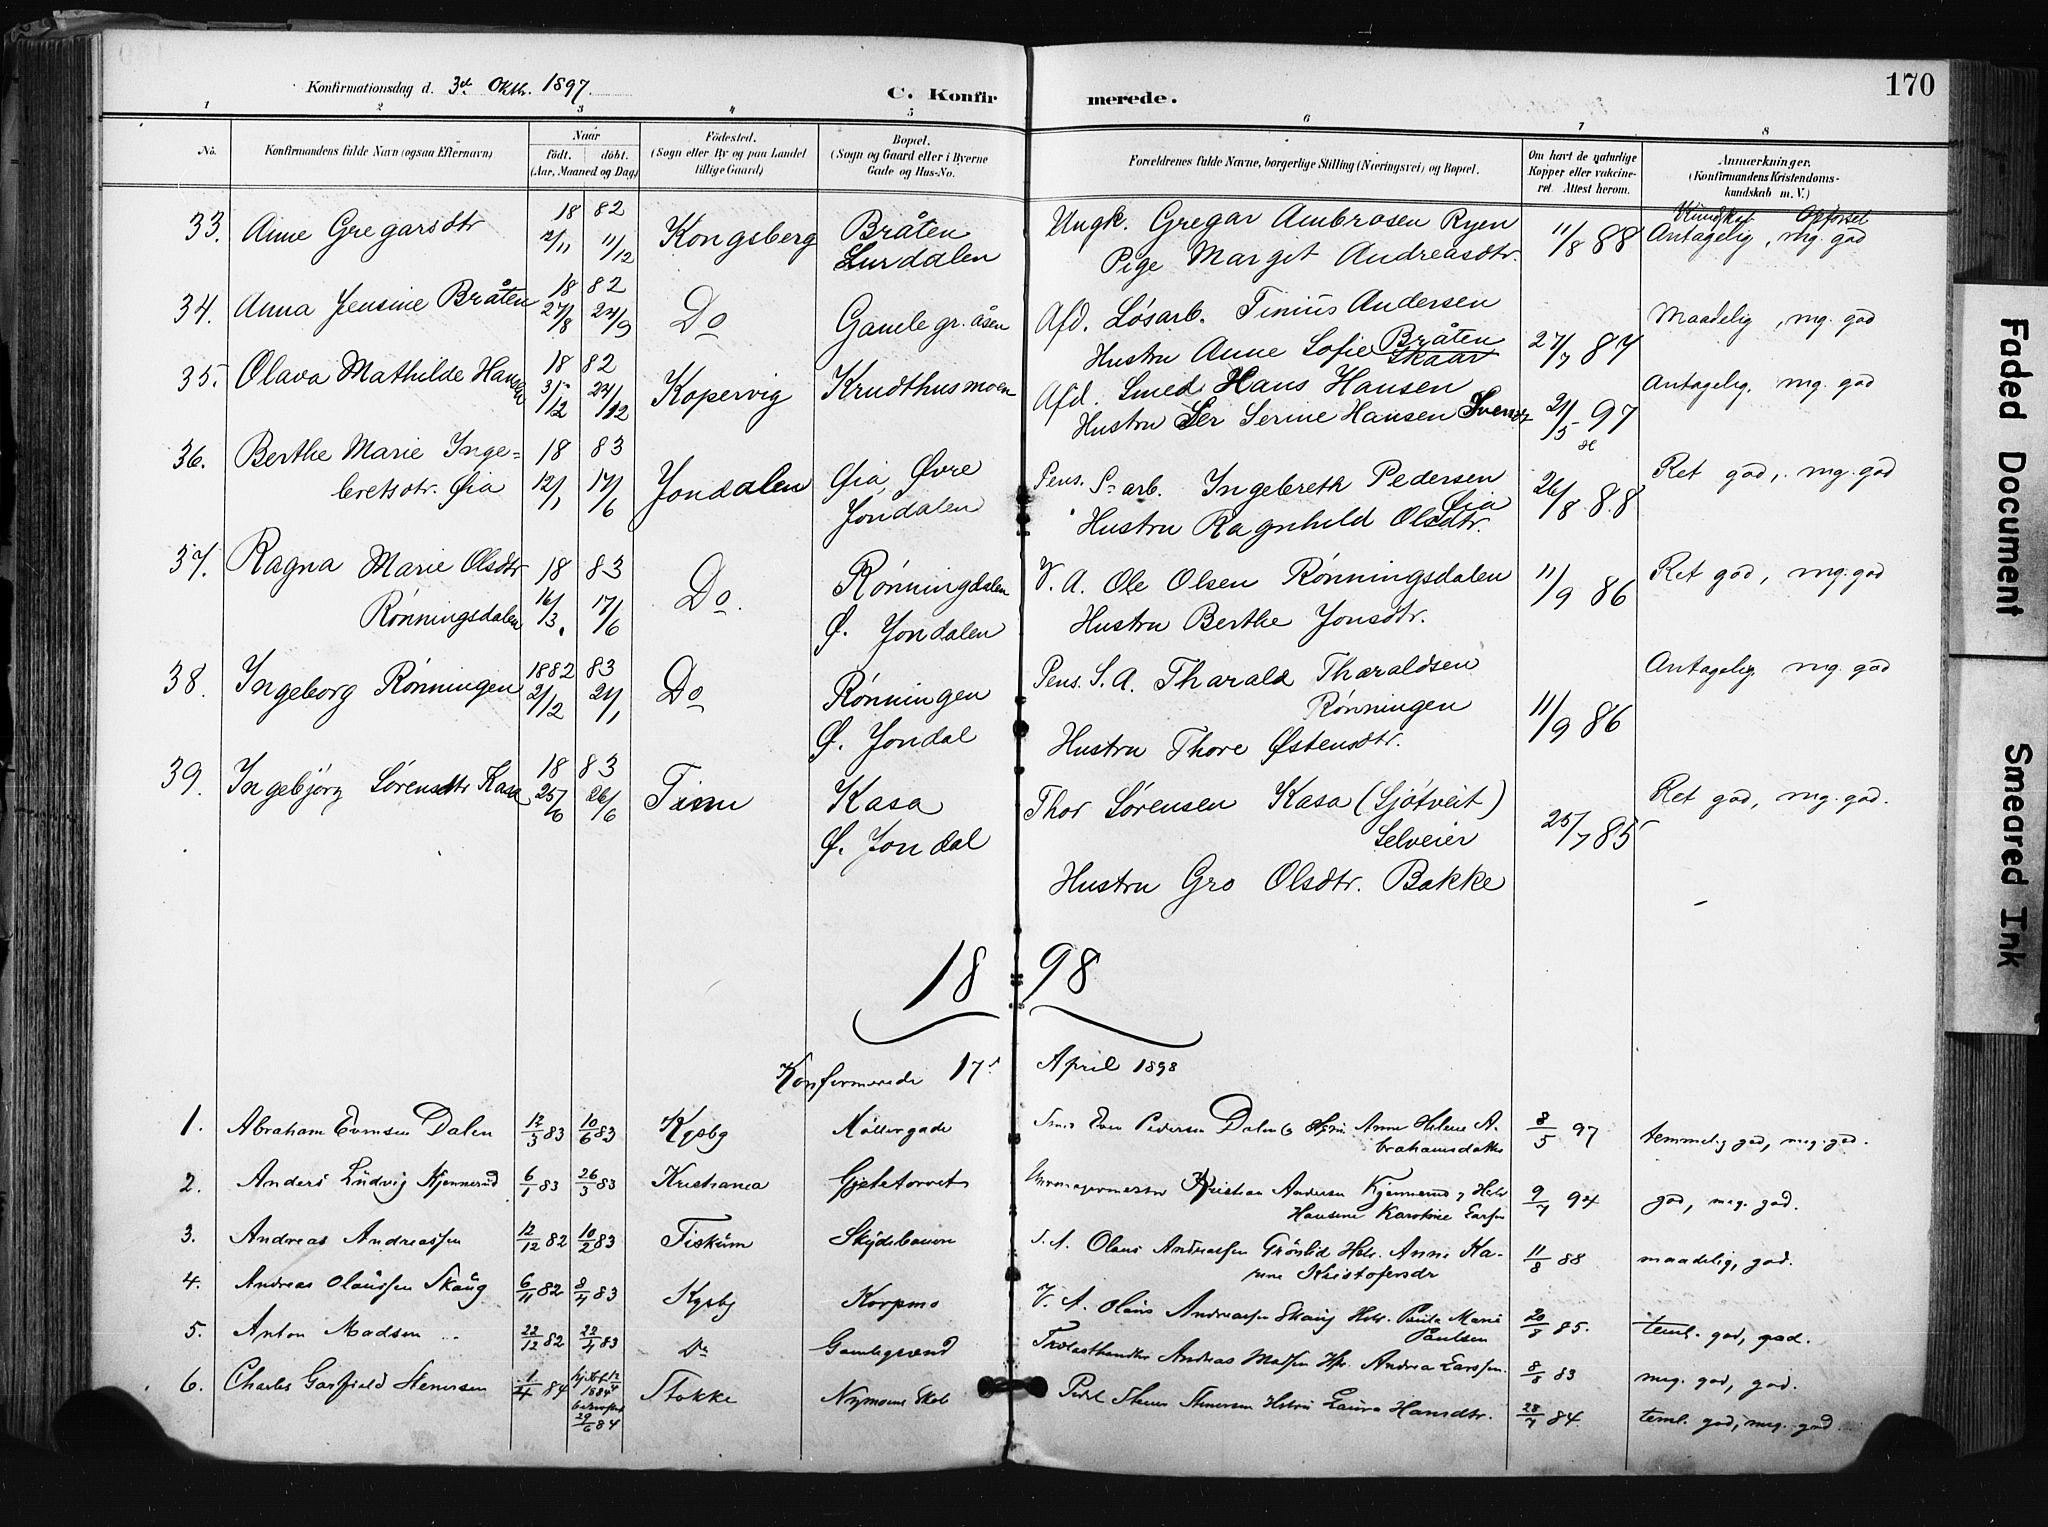 170
Konfirmationsdag d. 3die Oktbr. 1897.
C. Konfirmerede.
1 2 3 4 5 6 7 8
No.
Konfirmandens fulde Navn (ogsaa Efternavn)
Naar
født. døbt.
(Aar, Maaned og Dag)
Fødested.
(Sogn eller By og paa Landet
tillige Gaard)
Bopæl.
(Sogn og Gaard eller i Byerne
Gade og Hus-No.
Forældrenes fulde Navne, borgerlige Stilling (Næringsvei) og Bopæl.
Om havt de naturlige
Kopper eller vakcine-
ret. Attest herom.
Anmærkninger.
(Konfirmandens Kristendoms-
kundskab m. V.)
Kundsk. Opførsel
33. Anne Gregarsdtr 18 82 12/11 11/12 Kongsberg Bråten Lurdalen
Ungk. Gregar Ambrosen Ryen
Pige Margit Andreasdtr. 11/8 88 Antagelig, mg. god
34. Anna Jensine Bråten 18 82 27/8 24/9 Do Gamle gr. åsen
Afd. Løsarb. Tinius Andersen
Hustru Anne Sofie Skaar Bråten 27/7 87 Maadelig, mg. god
35. Olava Mathilde Hansen 18 82 3/12 24/12 Kopervig Krudthusmoen
Afd. Smed Hans Hansen
Hustru Ser Serine Hansen 21/5 97 Antagelig, mg. god
36. Berthe Marie Inge=
bretsdtr. Øia 18 83 12/1 17/6 Jondalen Øia, Øvre Jondalen
Pens. S. arb. Ingebreth Pedersen Øia
Hustru Ragnhild Olsdtr. 26/8 88 Ret god, mg. god
37. Ragna Marie Olsdtr
Rønningsdalen 18 83 16/3 17/6 Do. Rønningdalen Ø. Jondalen
V. A. Ole Olsen Rønningsdalen
Hustru Berthe Jonsdtr. 11/9 86 Ret god, mg. god
38. Ingeborg Rønningen 1882 83 2/12 21/1 Do Rønningen Ø. Jondal
Pens. S. A. Tharald Tharaldsen
Rønningen
Hustru Thore Østensdtr. 11/9 86 Antagelig, mg. god
39. Ingebjørg Sørensdtr Kasa 18 83 25/6 26/6 Tinn Kasa Ø. Jondal
Thor Sørensen Kasa (Sjøtveit)
Selveier
Hustru Gro Olsdtr. Bakke 25/7 85 Ret god, mg. god.
18 98
Konfirmerede 17d April 1898
1. Abraham Evensen Dalen 12/3 83 10/6 83 Kgsbg Møllergade
Even Pedersen Dalen Anne Helene A-
brahamsdatter 8/5 97 temmelig god, meg. god.
2. Anders Ludvig Kjennerud 6/1 83 26/3 83 Kristiania Gjetetorvet
Kristian Andersen Kjennerud
Hansine Karoline Larsen 9/7 94 god, meg. god.
3. Andreas Andreassen 12/12 82 10/2 83 Fiskum Skydebanen
S. A. Olaus Andreassen Grøslid Hstr. Anne Ka-
rine Kristofersdr 11/8 88 maadelig, god.
4. Andreas Olaussen Skaug 6/11 82 8/4 83 Kgsbg Korpmo
V. A. Olaus Andreassen Skaug Hstr. Paula Marie
Paulsen 20/8 85. teml. god, god.
5. Anton Madsen 22/12 82 22/4 83 Do Gamlegrænd
Andreas Madsen Andrea Larssen. 8/8 83 meg. god, god.
6. Charles Garfield Stenersen 1/4 84 hjdbt 12/4 1884 29/6 84 Stokke Nymoens Skole
Stener Stenersen Hstr Laura Hansdtr. 28/7 84. teml. god, meg. god
Faded Document
Smeared Ink